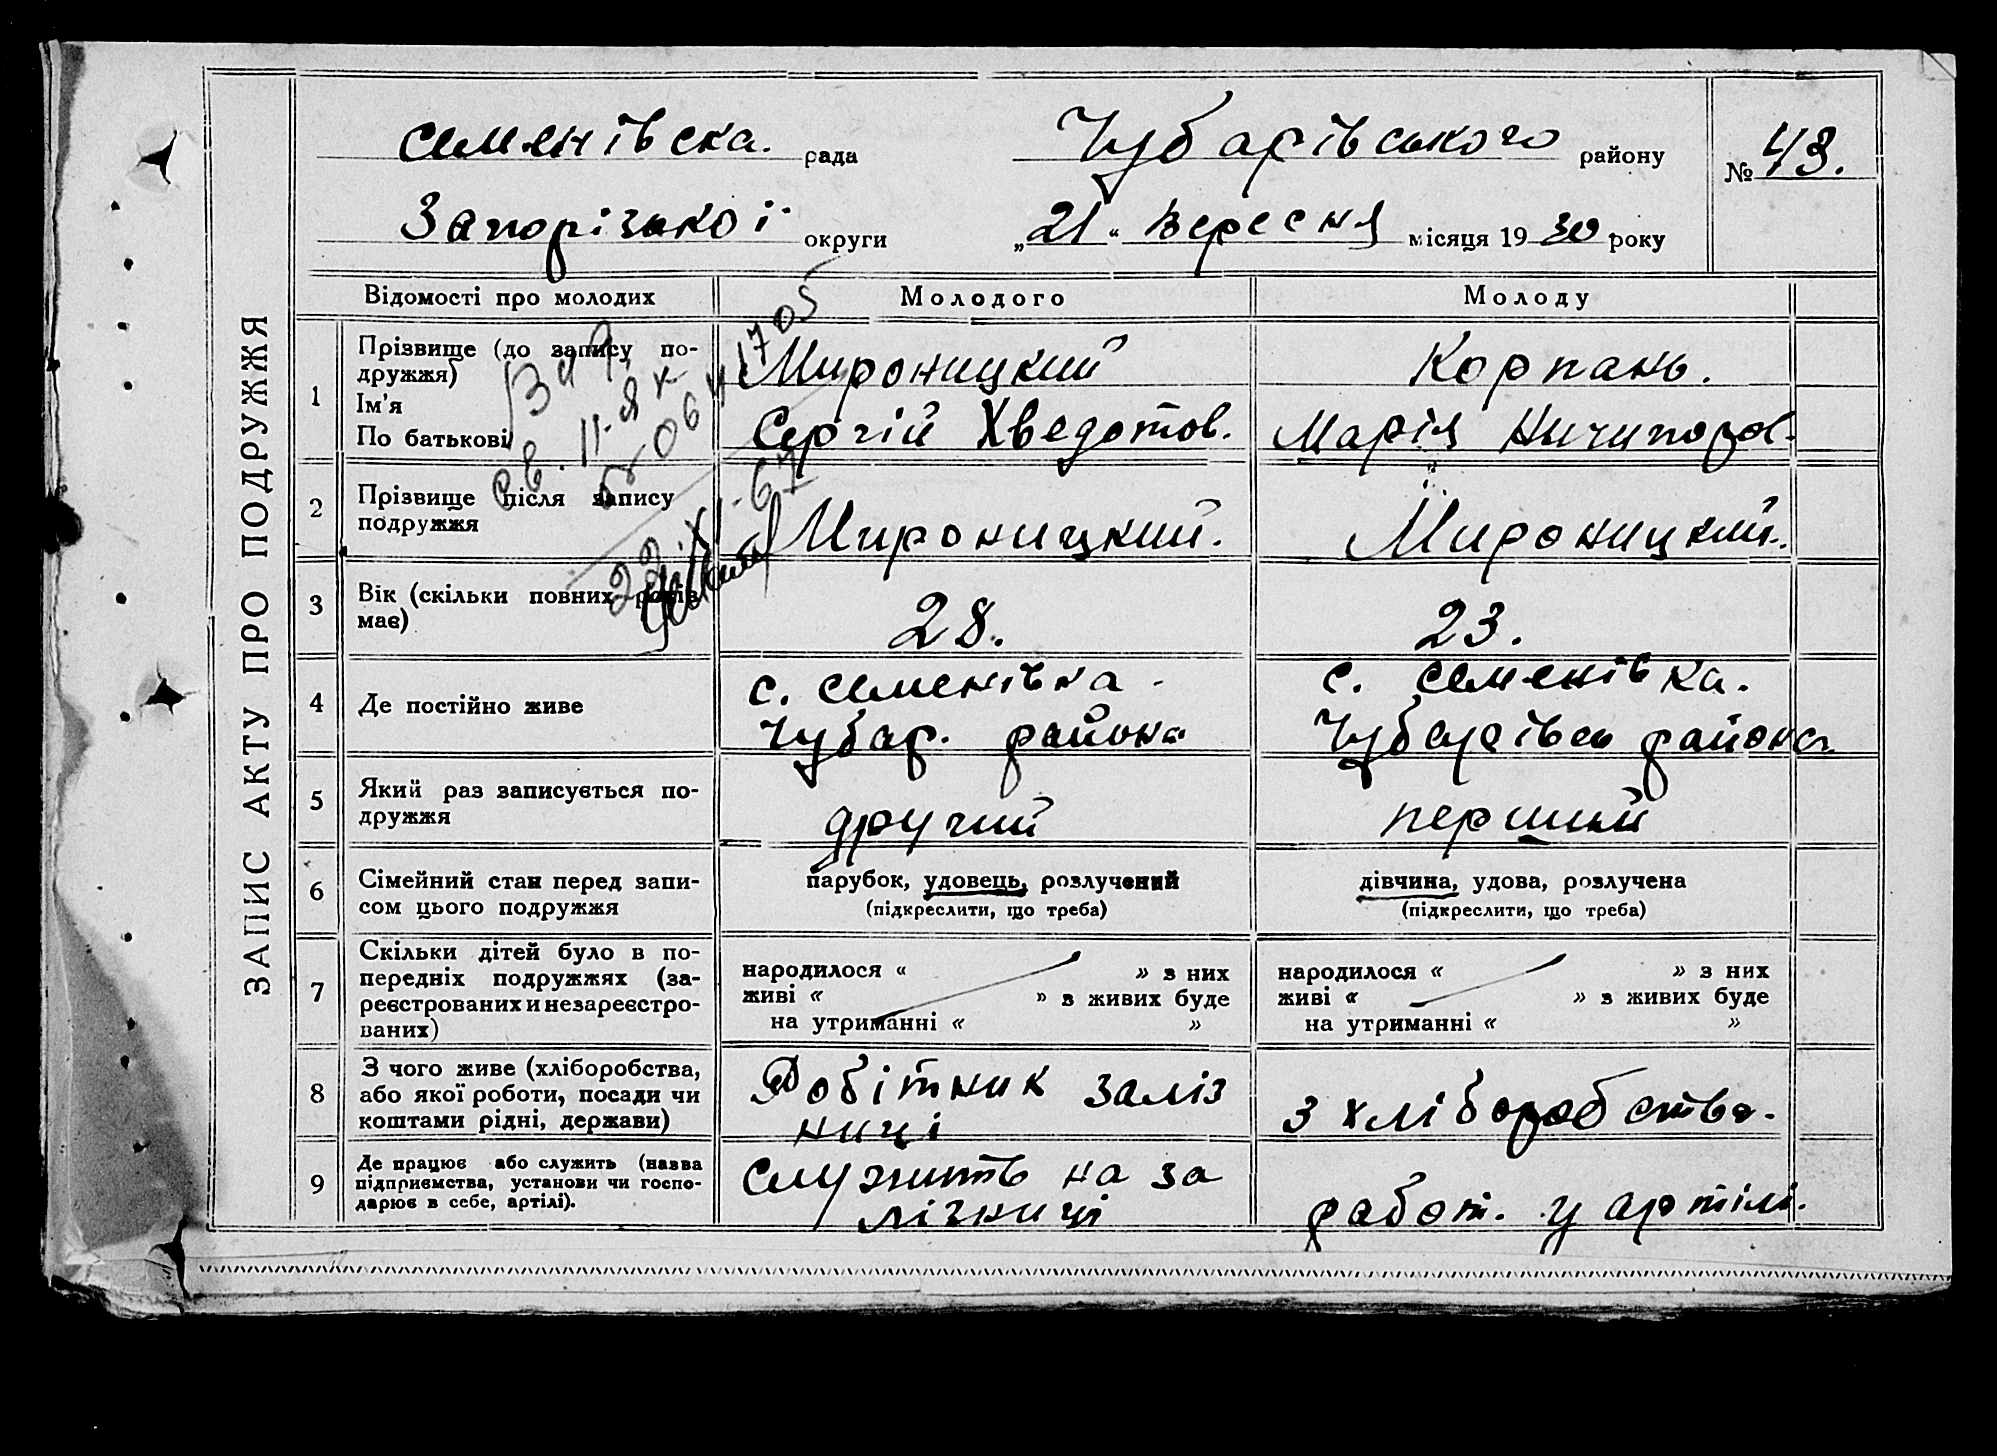 ЗАПИС АКТУ ПРО ПОДРУЖЖЯ
Семенівска. рада Чубарівського району № 43.
Запорізької округи „21“ вересня місяця 1930 року
Відомості про молодих Молодого Молоду
1 Прізвище (до запису по-
дружжя)
Ім’я
По батькові
Мироницкий
Сергій Хведотов.
Корпань.
Марія Ничипоров.
2 Прізвище після запису
подружжя
Мироницкий.
Мироницкий.
3 Вік (скільки повних років
має)
28.
23.
4 Де постійно живе
с. Семенівка.
Чубар. района
с. Семенівка.
Чубарівськ района
5 Який раз записується по-
дружжя
другий
перший
6 Сімейний стан перед запи-
сом цього подружжя
парубок, удовець, розлучений
(підкреслити, що треба)
дівчина, удова, розлучена
(підкреслити, що треба)
7 Скільки дітей було в по-
передніх подружжях (за-
реєстрованих и незареєстро-
ваних)
народилося « » з них
живі « » з живих буде
на утриманні « »
народилося « » з них
живі « » з живих буде
на утриманні « »
8 З чого живе (хліборобства,
або якої роботи, посади чи
коштами рідні, держави)
Робітник заліз
ниці
з хліборобства.
9 Де працює або служить (назва
підприємства, установи чи госпо-
дарює в себе, артілі).
Служить на за
лізниці
работ. у артілі.
22.XI-67